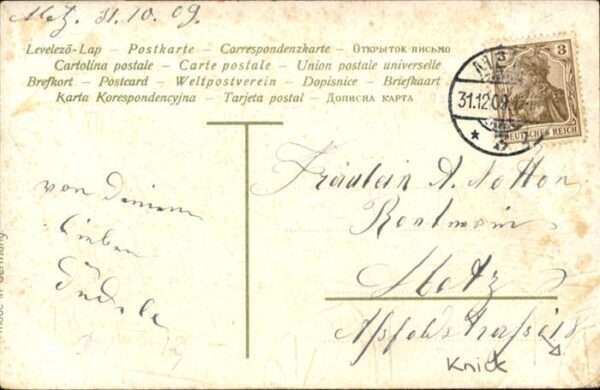 Metz. 31.10.09.
Levelező-Lap – Postkarte – Correspondenzkarte – Открытok письмо
Cartolina postale – Carte postale – Union postale universelle
Brefkort – Postcard – Weltpostverein – Dopisnice – Briefkaart
Karta Korespondencyjna – Tarjeta postal – Дописна карта
3
31.12.09
DEUTSCHES REICH
Fräulein A. Notton
Metz
von Deinem
lieben
Knick
Made in Germany